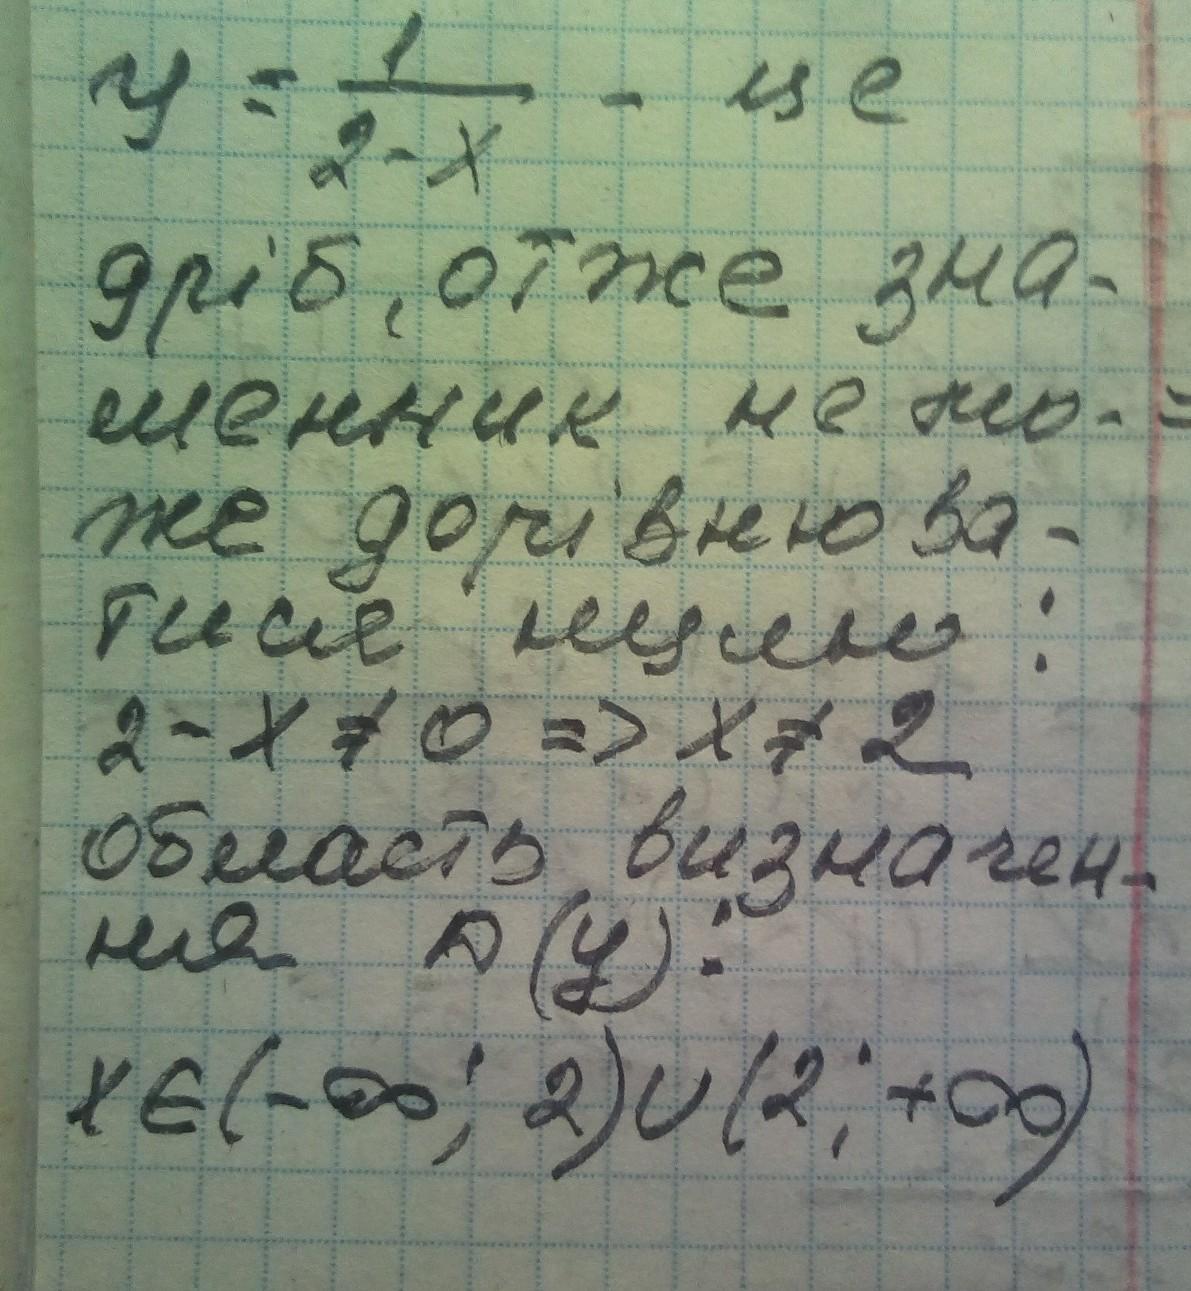 y = 1/(2-x) - це
дріб, отже зна-
менник не мо-
же дорівнюва-
тися нулю:
2-x≠0 => x≠2
область визначен-
ня D(y):
x∈(-∞; 2)∪(2; +∞)